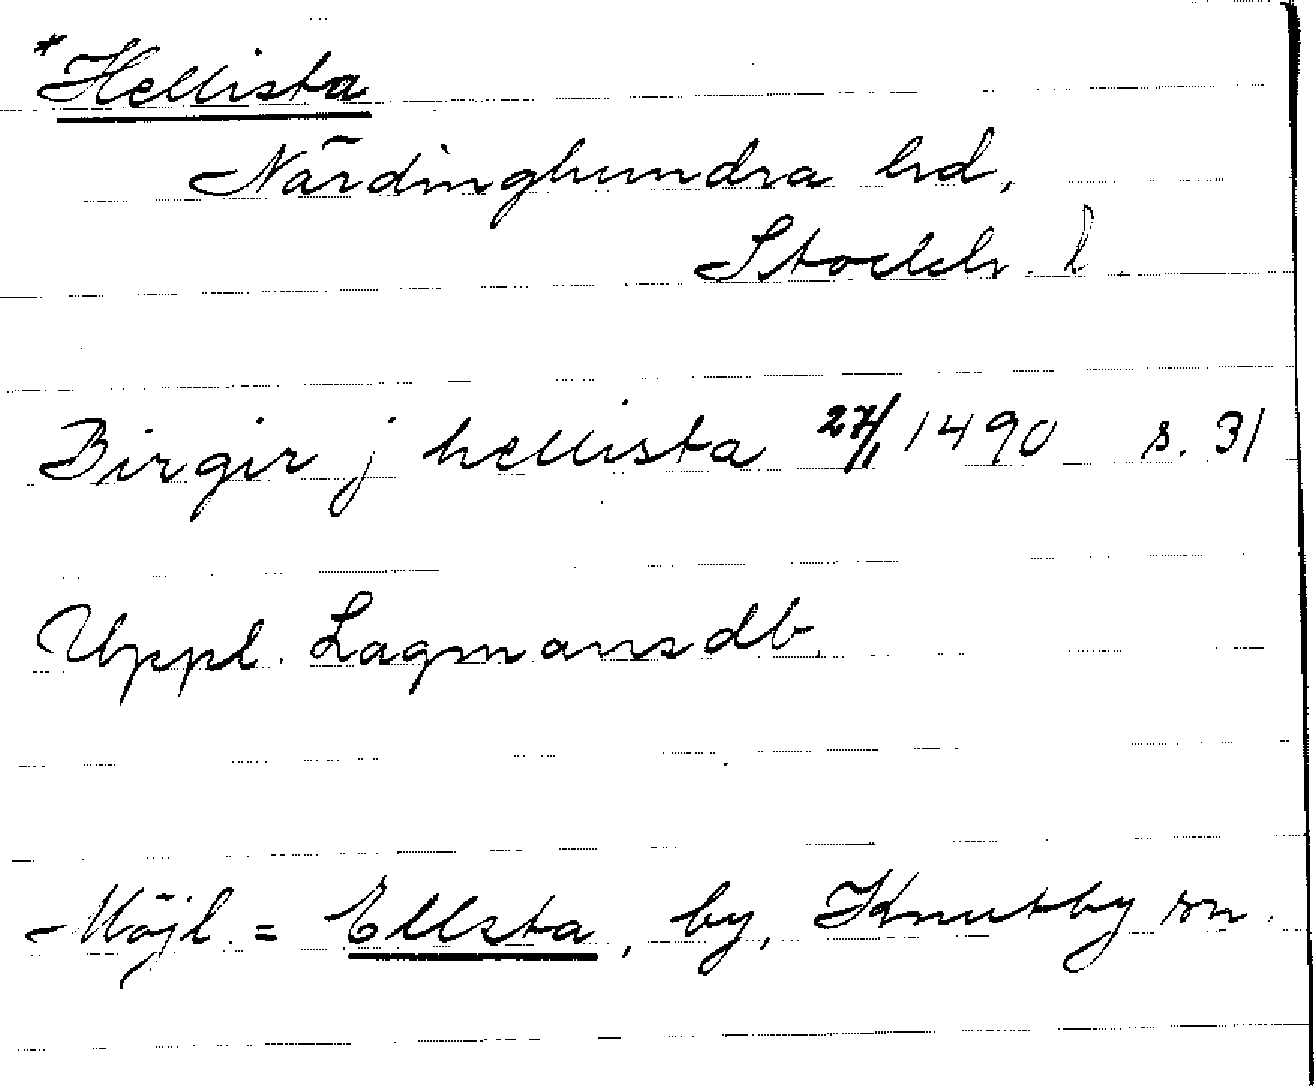 *Hellista
Närdinghundra hd,
Stockh. l.
Birgir j hellista 27/1 1490 s. 31
Uppl. Lagmansdb.
Möjl. = Ellsta, by, Knutby sn.